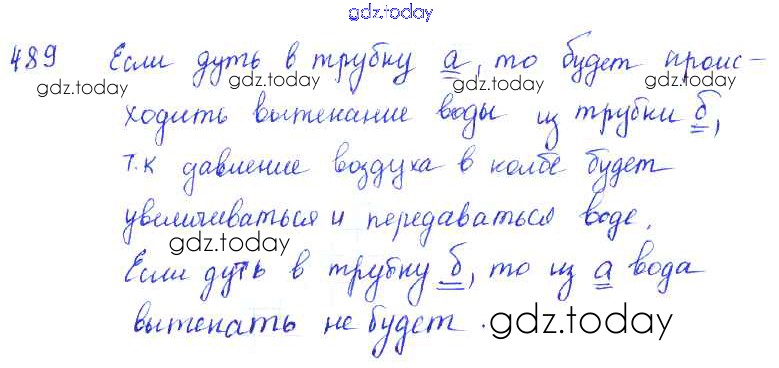 gdz.today
489 Если дуть в трубку а, то будет проис-
gdz.today gdz.today gdz.today
ходить вытекание воды из трубки б,
т.к давление воздуха в колбе будет
увеличиваться и передаваться воде.
gdz.today
Если дуть в трубку б, то из а вода
вытекать не будет.
gdz.today